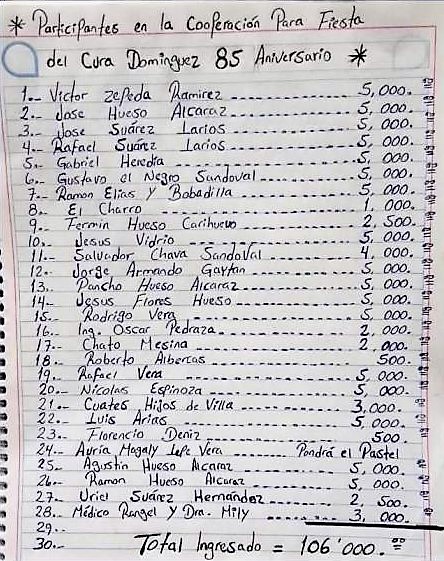 * Participantes en la Cooperación Para Fiesta
del Cura Dominguez 85 Aniversario *
1.- Victor Zepeda Ramirez ---------- 5,000.
2.- Jose Hueso Alcaraz ---------- 5,000.
3.- Jose Suárez Larios ---------- 5,000.
4.- Rafael Suárez Larios ---------- 5,000.
5.- Gabriel Heredia ---------- 5,000.
6.- Gustavo el Negro Sandoval ---------- 5,000.
7.- Ramon Elias y Bobadilla ---------- 5,000.
8.- El Charro ---------- 1,000.
9.- Fermin Hueso Carihuevo ---------- 2,500.
10.- Jesus Vidrio ---------- 5,000.
11.- Salvador Chava Sandoval ---------- 4,000.
12.- Jorge Armando Gaytan ---------- 5,000.
13.- Pancho Hueso Alcaraz ---------- 5,000.
14.- Jesus Flores Hueso ---------- 5,000.
15.- Rodrigo Vera ---------- 5,000.
16.- Ing. Oscar Pedraza ---------- 2,000.
17.- Chato Mesina ---------- 2,000.
18.- Roberto Albercas 500.
19.- Rafael Vera ---------- 5,000.
20.- Nicolas Espinoza ---------- 5,000.
21.- Cuates Hijos de Villa ---------- 3,000.
22.- Luis Arias ---------- 5,000.
23.- Florencio Deniz 500.
24.- Ayria Magaly Lepe Vera Pondrá el Pastel
25.- Agustin Hueso Alcaraz ---------- 5,000.
26.- Ramon Hueso Alcaraz ---------- 5,000.
27.- Uriel Suárez Hernández ---------- 2,500.
28.- Médico Rangel y Dra. Mily ---------- 3,000.
29.-
30.- Total Ingresado = 106'000.00